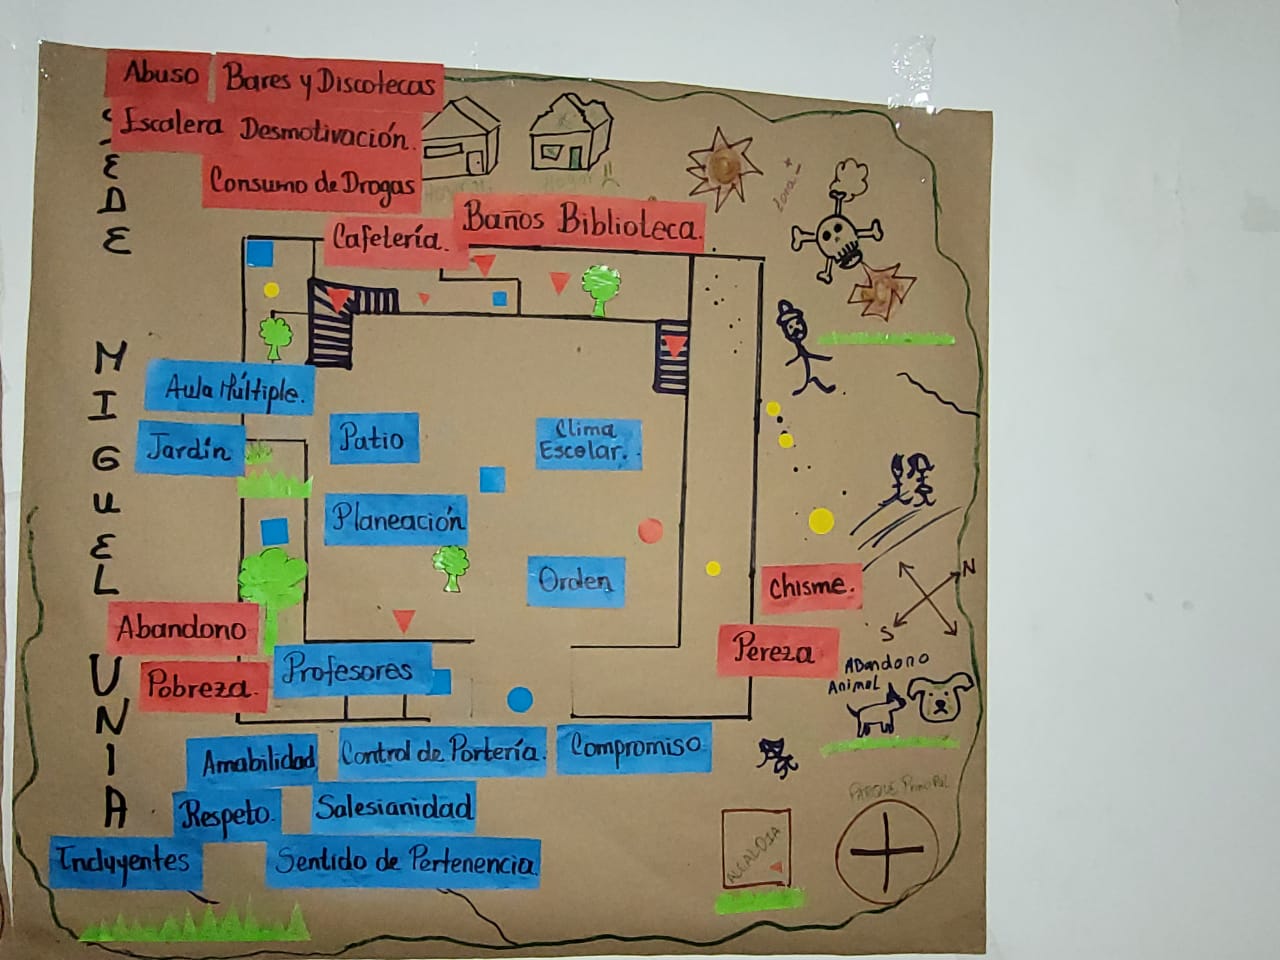 Abuso
Bares y Discotecas
Escalera
Desmotivación.
Consumo de Drogas
Cafetería.
Baños
Biblioteca.
SEDE
MIGUEL
UNIA
Aula Múltiple.
Jardín
Patio
Clima
Escolar.
Planeación
Orden
Chisme.
Pereza
N
S
Abandono
Pobreza.
Profesores
ABandono
AnimaL
Amabilidad
Control de Portería.
Compromiso.
Respeto.
Salesianidad
Incluyentes
Sentido de Pertenencia.
PARQUE Principal
ALCALDIA